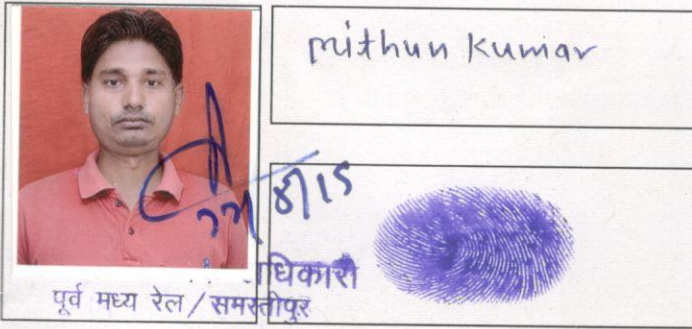 Mithun Kumar
8/15
धिकारी
पूर्व मध्य रेल / समस्तीपुर